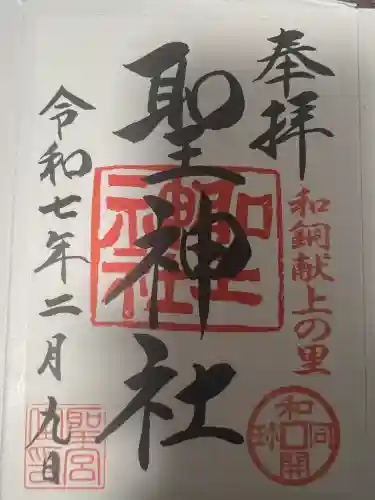 奉拝
和銅献上の里
聖神社
令和七年二月九日
和同開珎
聖神社
聖宮